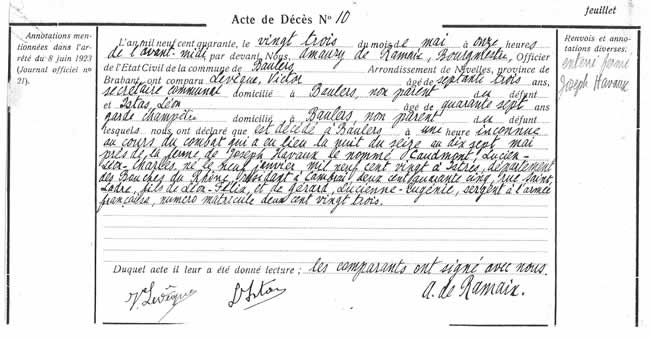 feuillet
Acte de Décès No 10
Annotations men-
tionnées dans l'ar-
rêté du 8 juin 1923
(Journal officiel no
21).
L'an mil neuf cent quarante, le vingt trois du mois de mai à onze heures
de l'avant-midi, par devant Nous, Amaury de Ramaix, Bourgmestre, Officier
de l'Etat Civil de la commune de Baulers Arrondissement de Nivelles, province de
Brabant, ont comparu Levêque, Victor âgé de septante trois ans,
secrétaire communal domicilié à Baulers, non parent du défunt
et Istas, Léon âgé de quarante sept ans,
garde champêtre domicilié à Baulers non parent du défunt
lesquels nous ont déclaré que est décédé à Baulers à une heure inconnue
au cours du combat qui a eu lieu la nuit du seize au dix sept mai
près de la ferme de Joseph Havaux le nommé Caudmont, Lucien-
Léon-Charles, né le neuf janvier mil neuf cent vingt à Istres, département
des Bouches du Rhône, résidant à Cambrai deux cent quarante cinq, rue Saint-
Ladre, fils de Léon-Félia, et de Gérard, Lucienne-Eugénie, sergent à l'armée
française, numéro matricule deux cent vingt trois.
Duquel acte il leur a été donné lecture; les comparants ont signé avec nous.
V. Levêque L. Istas A. de Ramaix.
Renvois et anno-
tations diverses:
enterré ferme
Joseph Havaux